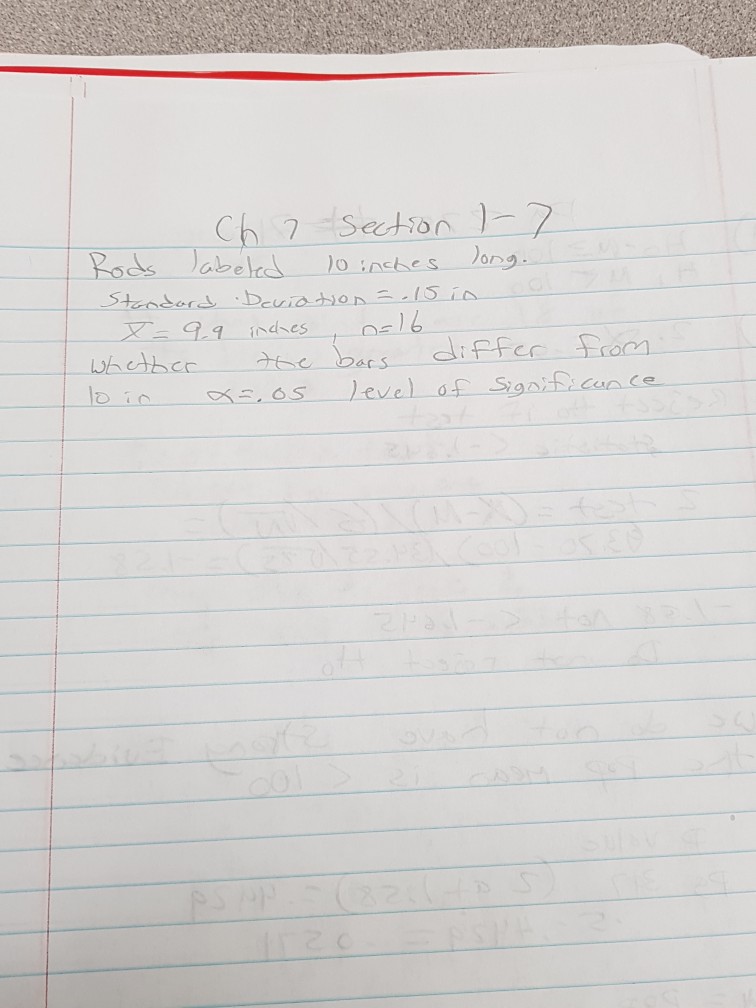 Ch 7 Section 1-7
Rods labeled 10 inches long.
Standard Deviation = .15 in
X̄ = 9.9 inches, n=16
whether the bars differ from
10 in α=.05 level of significance